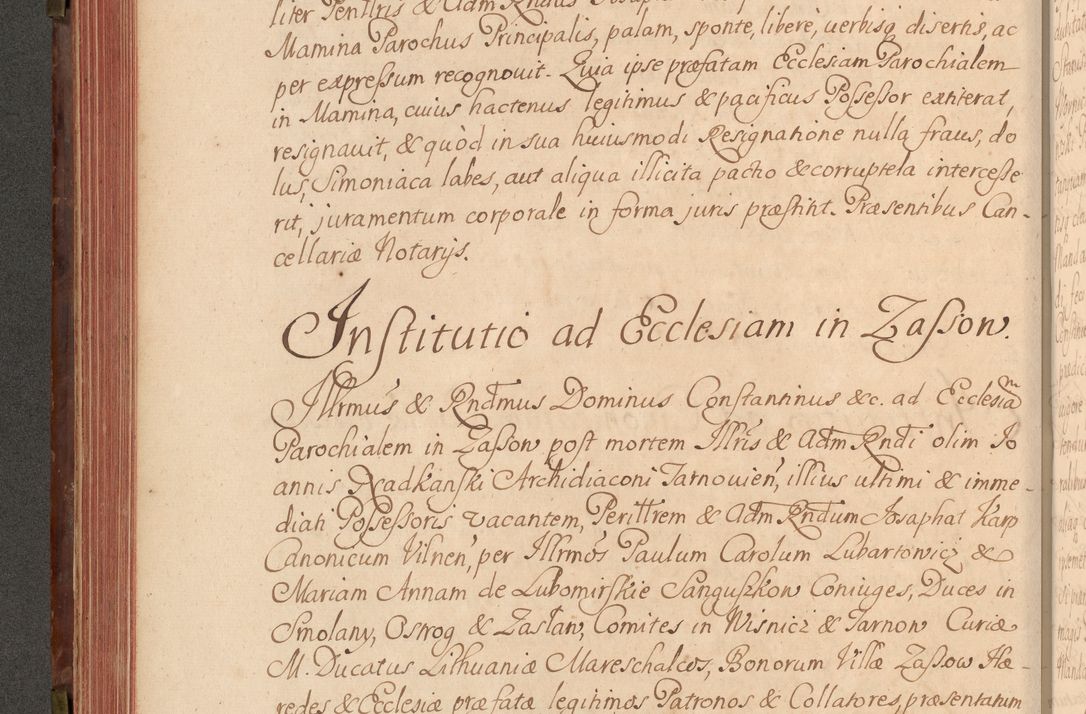 liter Penttris & Adm Rndus
Mamina Parochus Principalis, palam, sponte, libere, verbisq disertis, ac
per expressum recognovit. Quia ipse præfatam Ecclesiam Parochialem
in Mamina, cuius hactenus legitimus & pacificus Possessor extiterat,
resignavit, & quòd in sua huiusmodi Resignatione nulla fraus, do
lus, Simoniaca labes, aut aliqua illicita pactio & corruptela intercesse
rit, juramentum corporale in forma juris præstitit. Præsentibus Can-
cellariæ Notarijs.
Institutio ad Ecclesiam in Zasson.
Illrmus & Rndmus Dominus Constantinus &c. ad Ecclesiam
Parochialem in Zasson post mortem Illris & Adm Rndi olim Jo
annis Radkanski Archidiaconi Tarnovien, illius ultimi & imme-
diati Possessoris vacantem, Perillrem & Adm Rndum Josaphat Karp
Canonicum Vilnen, per Illrmos Paulum Carolum Lubartowicz &
Mariam Annam de Lubomirskie Sanguszkow Coniuges, Duces in
Smolany, Ostrog & Zasław, Comites in Wisnicz & Tarnow Curiæ
M. Ducatus Lithuaniæ Mareschalcos, Bonorum Villæ Zassow Hæ-
redes & Ecclesiæ præfatæ legitimos Patronos & Collatores, præsentatum